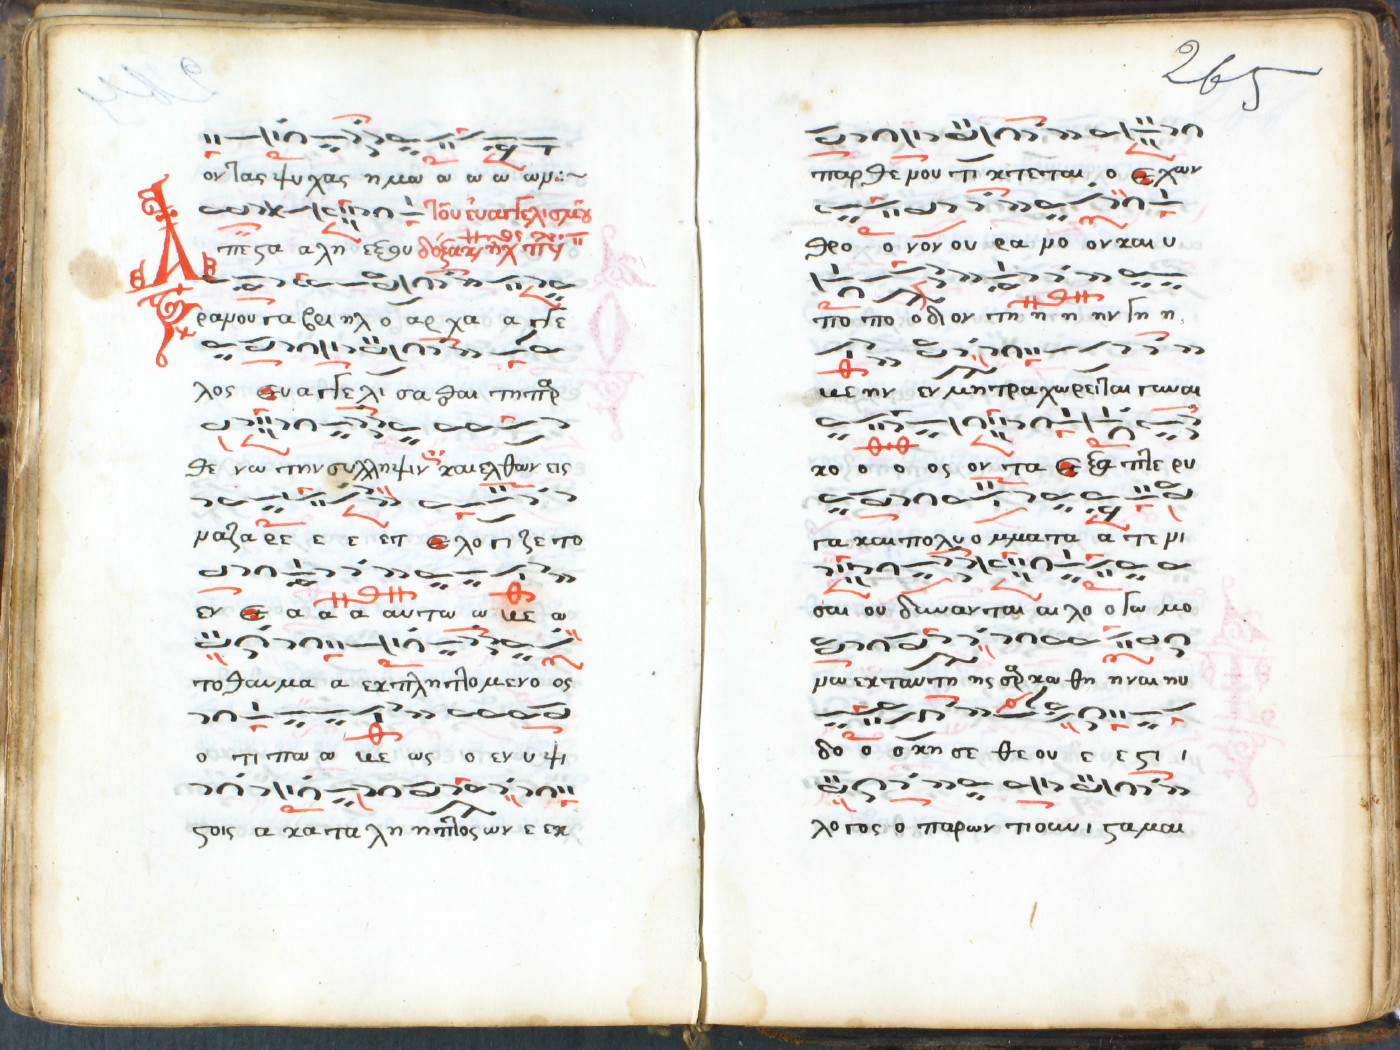 ον τας ψυ χας η μω ω ω ω ωμ
Του ευαγγελισμου
Α πε ςα α λη εξ ου δοξα και ηχ
ρα μου γα βρι ηλ ο αρ χα α γγε
λος ευ α γγε λι σα θαι τη παρ
θε νω την συλληψιν και ελθων εις
μαζα ρε ε ε ετ ελο γι ζε το
εν ε α α α αυ τω ω με ω
το θαυμα α εκ πλη ττο μενο ος
ο τι πω ω με ως ο εν υ ψι
ςοις α κα τα λη η πτος ων ε εκ
265
παρ θε μου τι κτε ται ο ε χων
θρο ο νον ου ρα μο ον και υ
πο πο ο δι ον τη η η ην γη η
με ην εν μητρα χωρειται γαναι
κο ο ο ος ον τα ε ξα πτε ρυ
γα και πολυ ο μματα α τε μι
σαι ου δυναν ται αι λο ο γω μο
μω εκ ταυτη ης σαρ κω θη η ναι ηυ
δο ο σκη σε θε ου ε ε ςι ι
λο γος ο παρων τι ουν ι ςα μαι